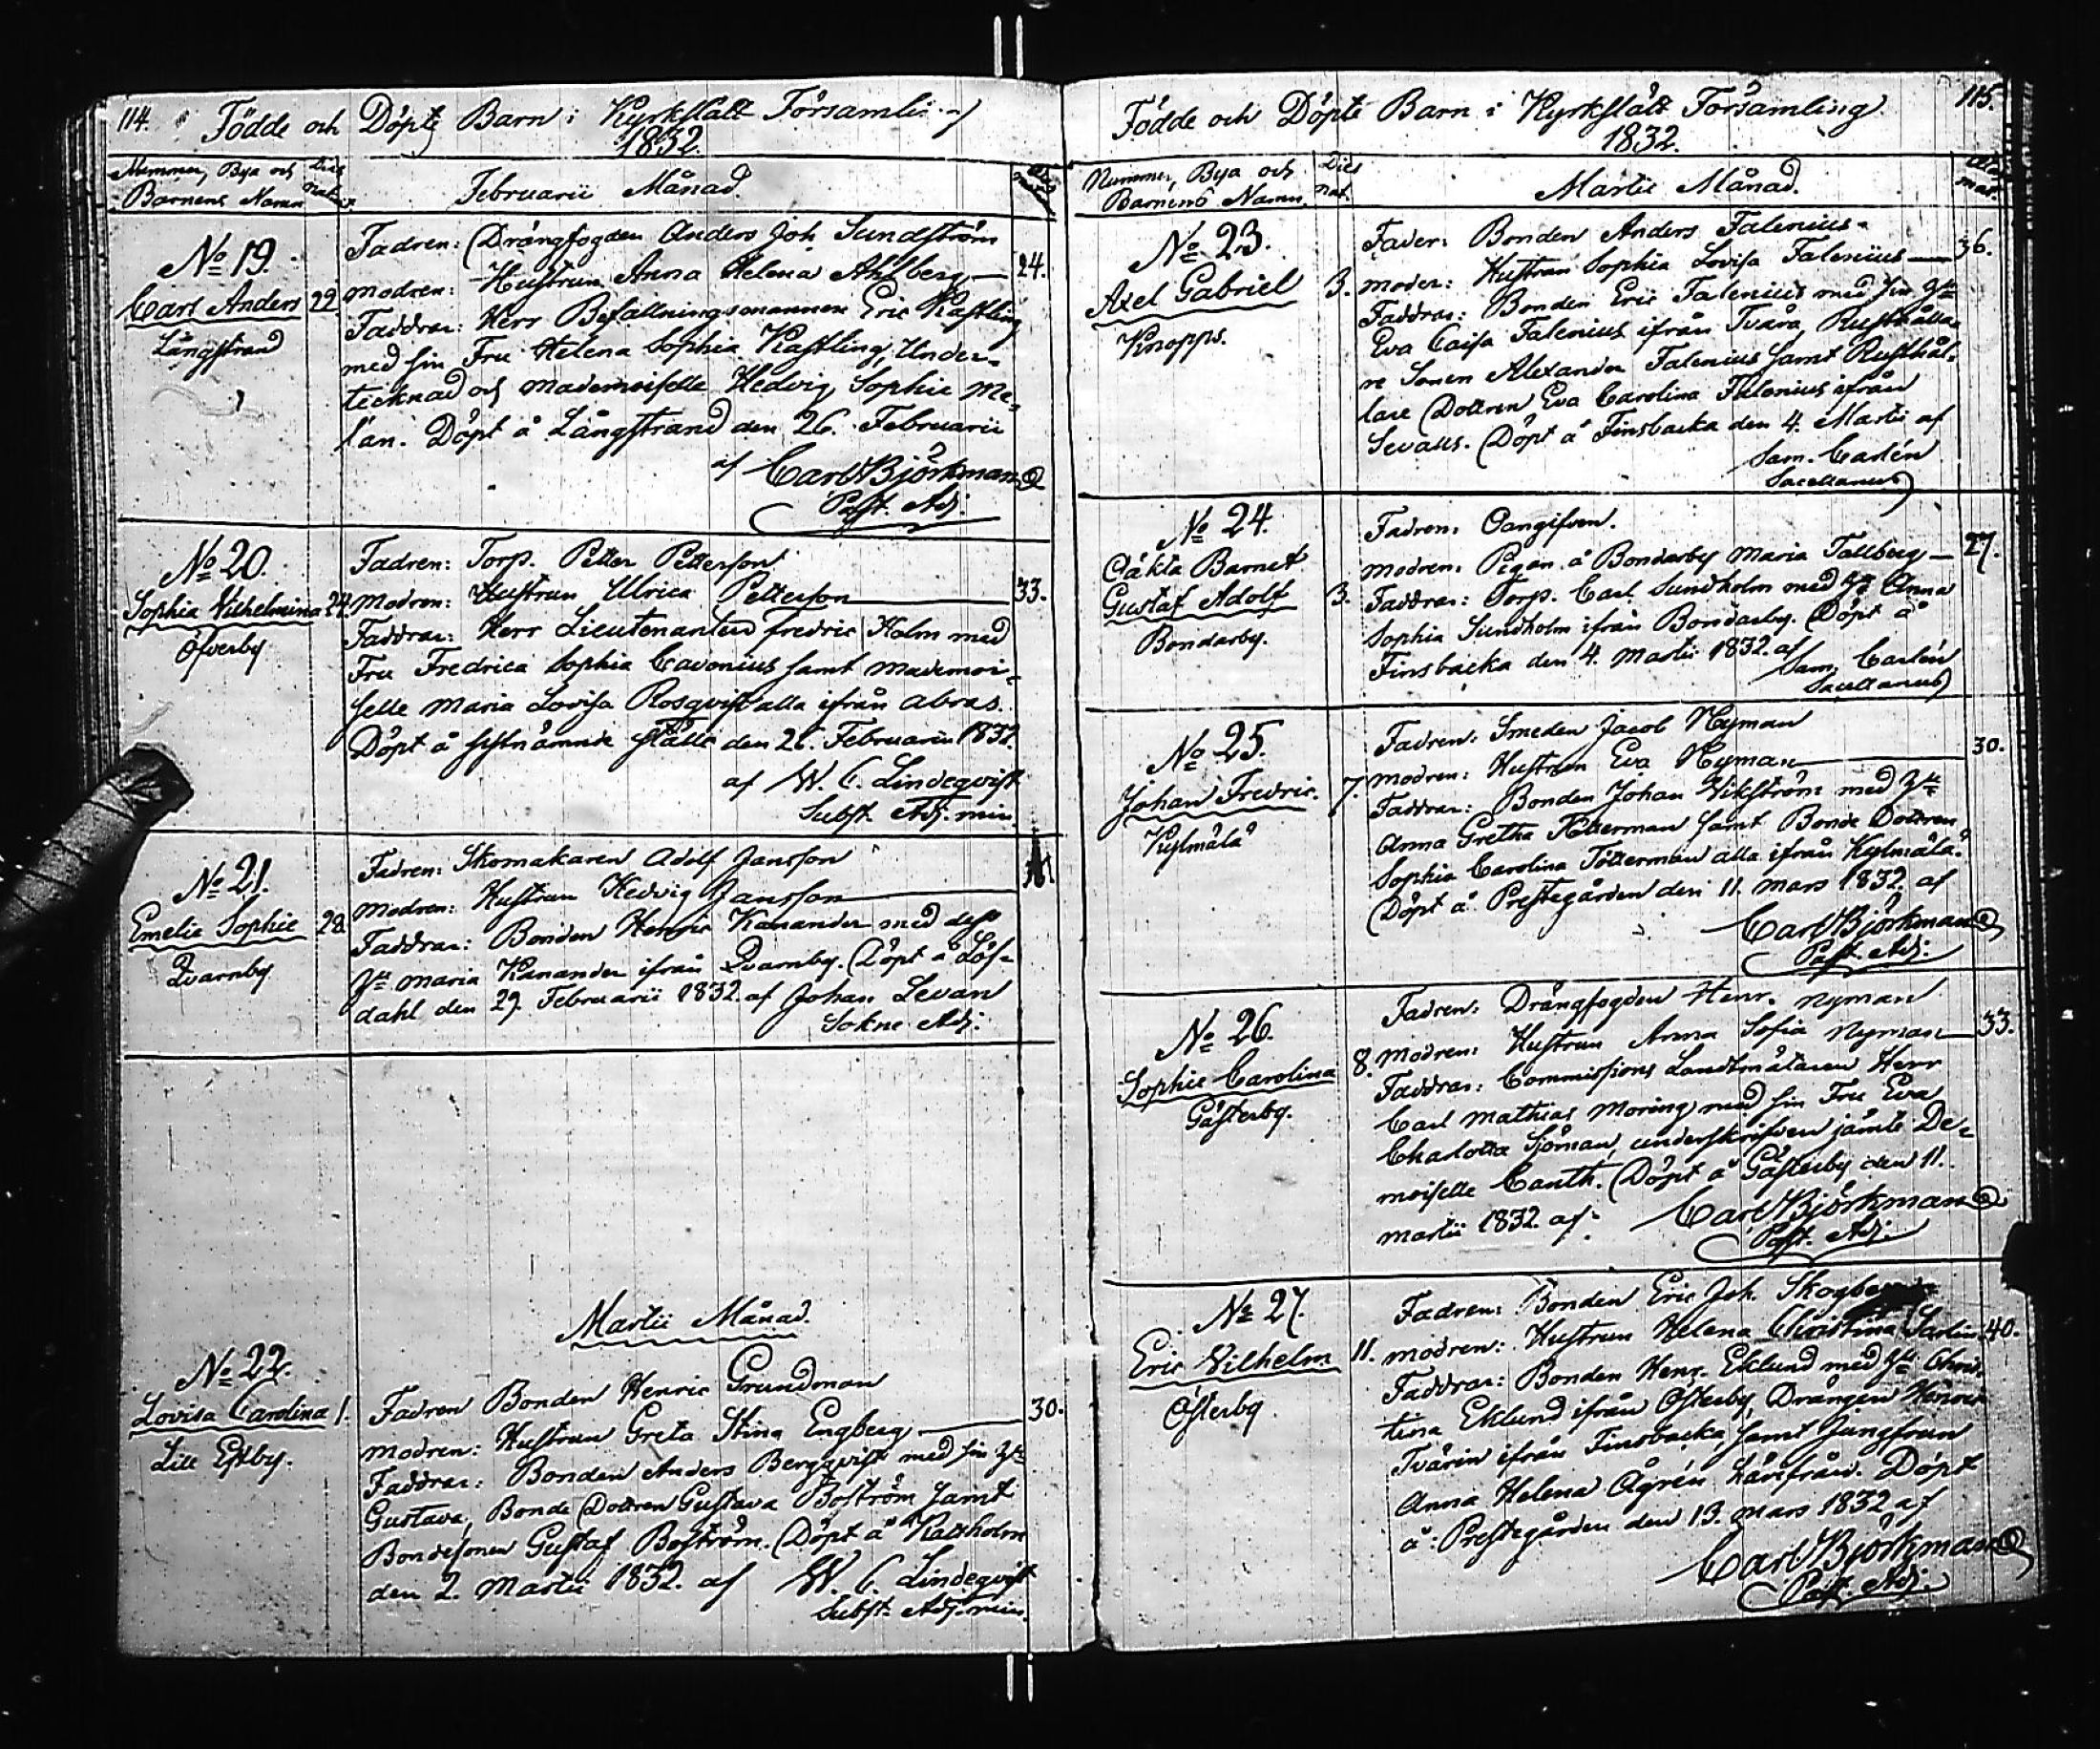 114. Födde och Döpte Barn i Kyrkslätt Församling
1832.
Nummer, Bya och Dies
Barnens Namn nat.
Februarii Månad.
No 19.
Carl Anders 22.
Långstrand
Fadren: Drängfogden Anders Joh Sundström
Modren: Hustrun Anna Helena Ahlberg — 24.
Faddrar: Herr Befallningsmannen Eric Kastling
med sin Fru Helena Sophia Kastling, Under-
tecknad och Mademoiselle Hedvig Sophie Me-
lan. Döpt å Långstrand den 26. Februarii
af Carl Björkman
Past. Adj.
No 20.
Sophia Vilhelmina 24.
Öfverby
Fadren: Torp. Petter Petterson
Modren: Hustrun Ulrica Petterson — 33.
Faddrar: Herr Lieutenanten Fredric Holm med
Fru Fredrica Sophia Cavonius samt Mademoi-
selle Maria Lovisa Rosqvist alla ifrån Abras.
Döpt å sistnämnde ställe den 26. Februarii 1832.
af W. C. Lindeqvist
Subst. Adj. min.
No 21.
Emelie Sophie 28.
Qvarnby
Fadren: Skomakaren Adolf Jansson
Modren: Hustrun Hedvig Jansson —
Faddrar: Bonden Henric Kanander med dess
Hu Maria Kanander ifrån Qvarnby. Döpt å Löf-
dahl den 29. Februarii 1832. af Johan Levan
Sokne Adj.
Martii Månad.
No 22.
Lovisa Carolina 1.
Lill Estby.
Fadren Bonden Henric Grundman
Modren: Hustrun Greta Stina Engberg — 30.
Faddrar: Bonden Anders Bergqvist med sin Hu
Gustava, Bonde Dottren Gustava Boström samt
Bondesonen Gustaf Boström. Döpt å Rastholm
den 2. Martii 1832. af W. C. Lindeqvist
Subst. Adj. min.
Födde och Döpte Barn i Kyrkslätt Församling. 115.
1832.
Nummer, Bya och Dies
Barnens Namn. nat.
Martii Månad.
No 23.
Axel Gabriel 3.
Knopps.
Fader: Bonden Anders Falenius
Moder: Hustrun Sophia Lovisa Falenius — 36.
Faddrar: Bonden Eric Falenius med sin Hu
Eva Caisa Falenius ifrån Tvärå, Rusthålla-
re Sonen Alexander Falenius samt Rusthål-
lare Dottren Eva Carolina Falenius ifrån
Sevalls. Döpt å Finsbacka den 4. Martii af
Sam. Carlén
Sacellanus
No 24.
Oäkta Barnet
Gustaf Adolf 3.
Bondarby.
Fadren: Oangifven.
Modren: Pigan å Bondarby Maria Tallberg — 27.
Faddrar: Torp. Carl Sundholm med Hu Anna
Sophia Sundholm ifrån Bondarby. Döpt å
Finsbacka den 4. Martii 1832. af
Sam. Carlén
Sacellanus
No 25.
Johan Fredric. 7.
Kylmälä
Fadren: Smeden Jacob Nyman
Modren: Hustrun Eva Nyman — 30.
Faddrar: Bonden Johan Vikström med Hu
Anna Gretha Tötterman samt Bonde Dottren
Sophia Carolina Tötterman alla ifrån Kylmälä.
Döpt å Prestegården den 11. Mars 1832. af
Carl Björkman
Past. Adj.
No 26.
Sophie Carolina 8.
Gästerby.
Fadren: Drängfogden Henr. Nyman
Modren: Hustrun Anna Sofia Nyman — 33.
Faddrar: Commissions Landtmätaren Herr
Carl Mathias Moring med sin Fru Eva
Charlotta Sjöman, underskrifven jämte De-
moiselle Canth. Döpt å Gästerby den 11.
Martii 1832. af Carl Björkman
Past. Adj.
No 27.
Eric Vilhelm 11.
Österby
Fadren: Bonden Eric Joh. Skogberg
Modren: Hustrun Helena Christina Sarlin 40.
Faddrar: Bonden Henr. Eklund med Hu Chris-
tina Eklund ifrån Österby, Drängen Henric
Tvärin ifrån Finsbacka, samt Jungfrun
Anna Helena Ågrén härifrån. Döpt
å Prestegården den 13. Mars 1832 af
Carl Björkman
Past. Adj.